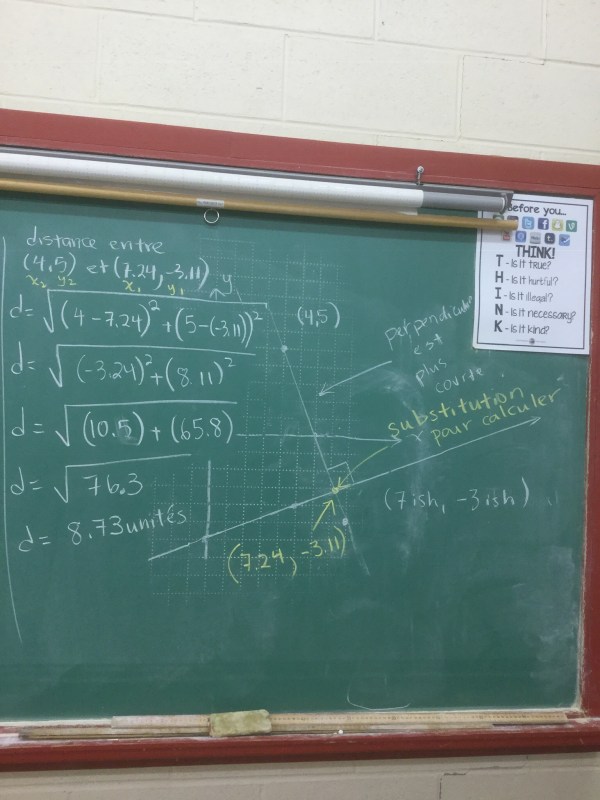 distance entre
(4,5) et (7.24, -3.11)
x₂ y₂ x₁ y₁
d = √(4 - 7.24)² + (5 - (-3.11))²
d = √(-3.24)² + (8.11)²
d = √(10.5) + (65.8)
d = √76.3
d = 8.73 unités
y
(4,5)
perpendiculaire
est
plus
courte
substitution
pour calculer
(7ish, -3ish)
(7.24, -3.11)
Before you...
THINK!
T - Is it true?
H - Is it hurtful?
I - Is it illegal?
N - Is it necessary?
K - Is it kind?